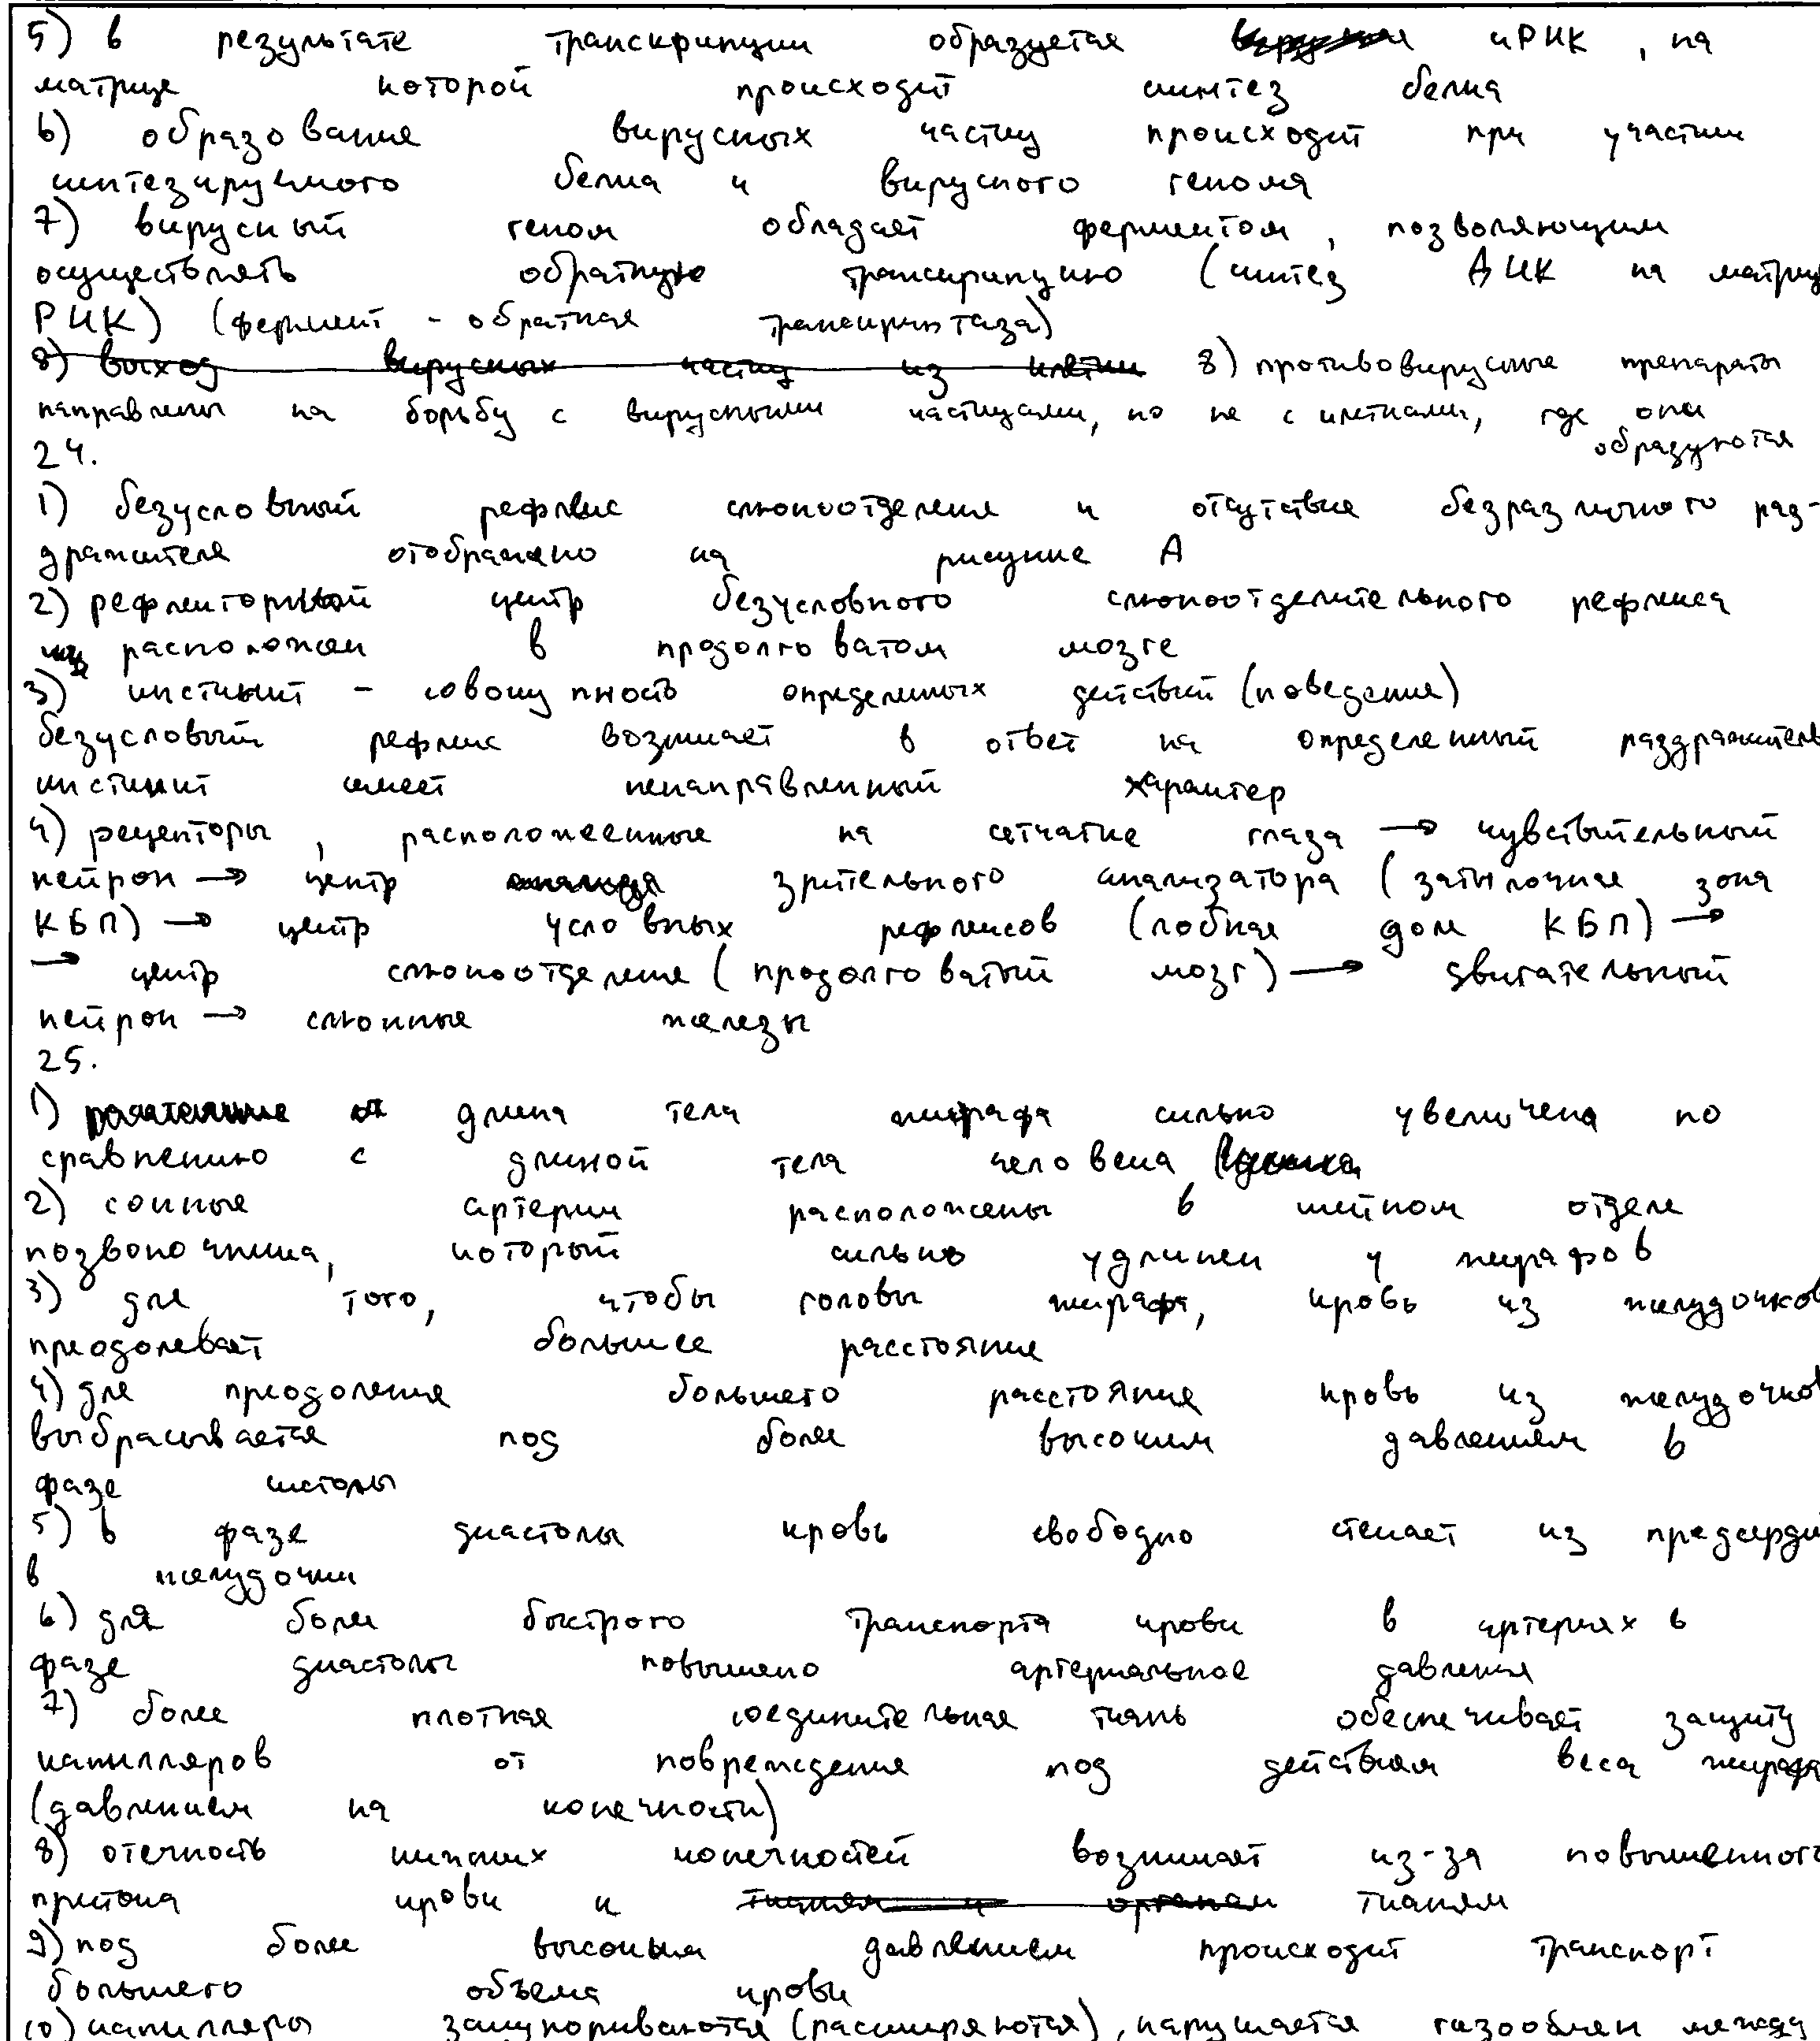 5) в результате транскрипции образуется иРНК, на
матрице которой происходит синтез белка
6) образование вирусных частиц происходит при участии
синтезируемого белка и вирусного генома
7) вирусный геном обладает ферментом, позволяющим
осуществлять обратную транскрипцию (синтез ДНК на матрице
РНК) (фермент - обратная транскриптаза)
8) выход вирусных частиц из клетки 8) противовирусные препараты
направлены на борьбу с вирусными частицами, но не с клетками, где они
образуются
24.
1) безусловный рефлекс слюноотделения и отсутствие безразличного раз-
дражителя отображено на рисунке А
2) рефлекторный центр безусловного слюноотделительного рефлекса
расположен в продолговатом мозге
3) инстинкт - совокупность определенных действий (поведения)
безусловый рефлекс возникает в ответ на определенный раздражитель
инстинкт имеет ненаправленный характер
4) рецепторы, расположеенные на сетчатке глаза → чувствительный
нейрон → центр зрительного анализатора (затылочная зона
КБП) → центр условных рефлексов (лобная доля КБП) →
→ центр слюноотделения (продолговатый мозг) → двигательный
нейрон → слюнные железы
25.
1) длина тела жирафа сильно увеличена по
сравнению с длиной тела человека
2) сонные артерии расположены в шейном отделе
позвоночника, который сильно удлинен у жирафов
3) для того, чтобы головы жирафа, кровь из желудочков
преодолевает большее расстояние
4) для преодоления большего расстояния кровь из желудочков
выбрасывается под более высоким давлением в
фазе систолы
5) в фазе диастолы кровь свободно стекает из предсердий
в желудочки
6) для более быстрого транспорта крови в артериях в
фазе диастолы повышено артериальное давления
7) более плотная соединительная ткань обеспечивает защиту
капилляров от повреждения под действием веса жирафа
(давлением на конечности)
8) отечность нижних конечностей возникает из-за повышенного
притока крови к тканям и органам тканям
9) под более высоким давлением происходит транспорт
большего объема крови
10) капилляры закупориваются (расширяются), нарушается газообмен между